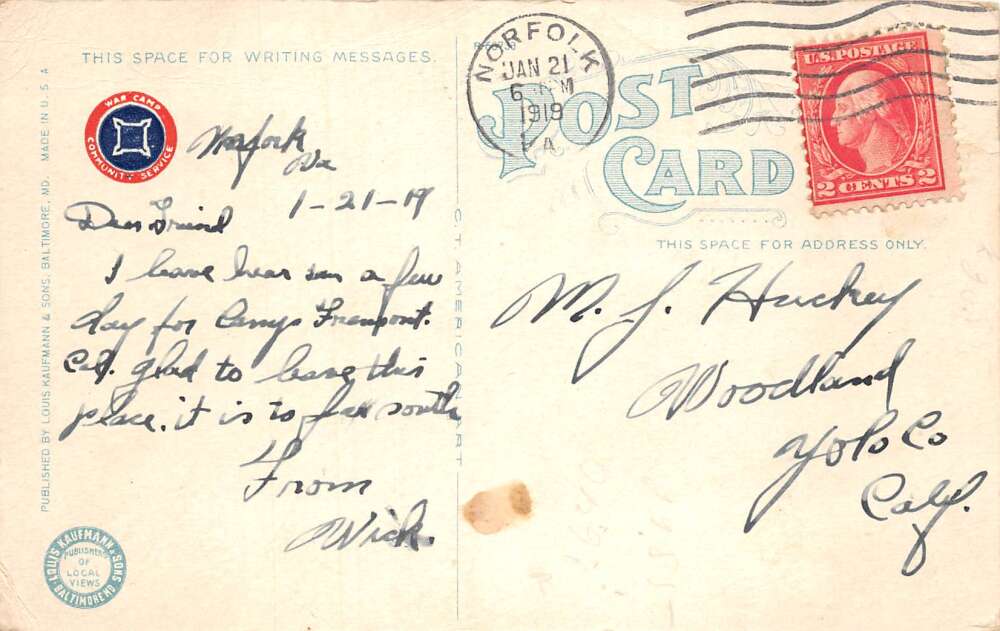 THIS SPACE FOR WRITING MESSAGES.
WAR CAMP
COMMUNITY SERVICE
Norfork
Va
1-21-19
Dear Friend
I leave hear in a few
day for Camp Freemont.
Cal. glad to leave this
place. it is to far south
From
Wick.
PUBLISHED BY LOUIS KAUFMANN & SONS, BALTIMORE, MD. MADE IN U. S. A
LOUIS KAUFMANN & SONS
BALTIMORE MD
PUBLISHERS
OF
LOCAL
VIEWS
C. T. AMERICAN ART
NORFOLK
JAN 21
6 PM
1919
VA
POST
CARD
U.S. POSTAGE
2 CENTS 2
THIS SPACE FOR ADDRESS ONLY.
M. J. Huckey
Woodland
Yolo Co
Calf.